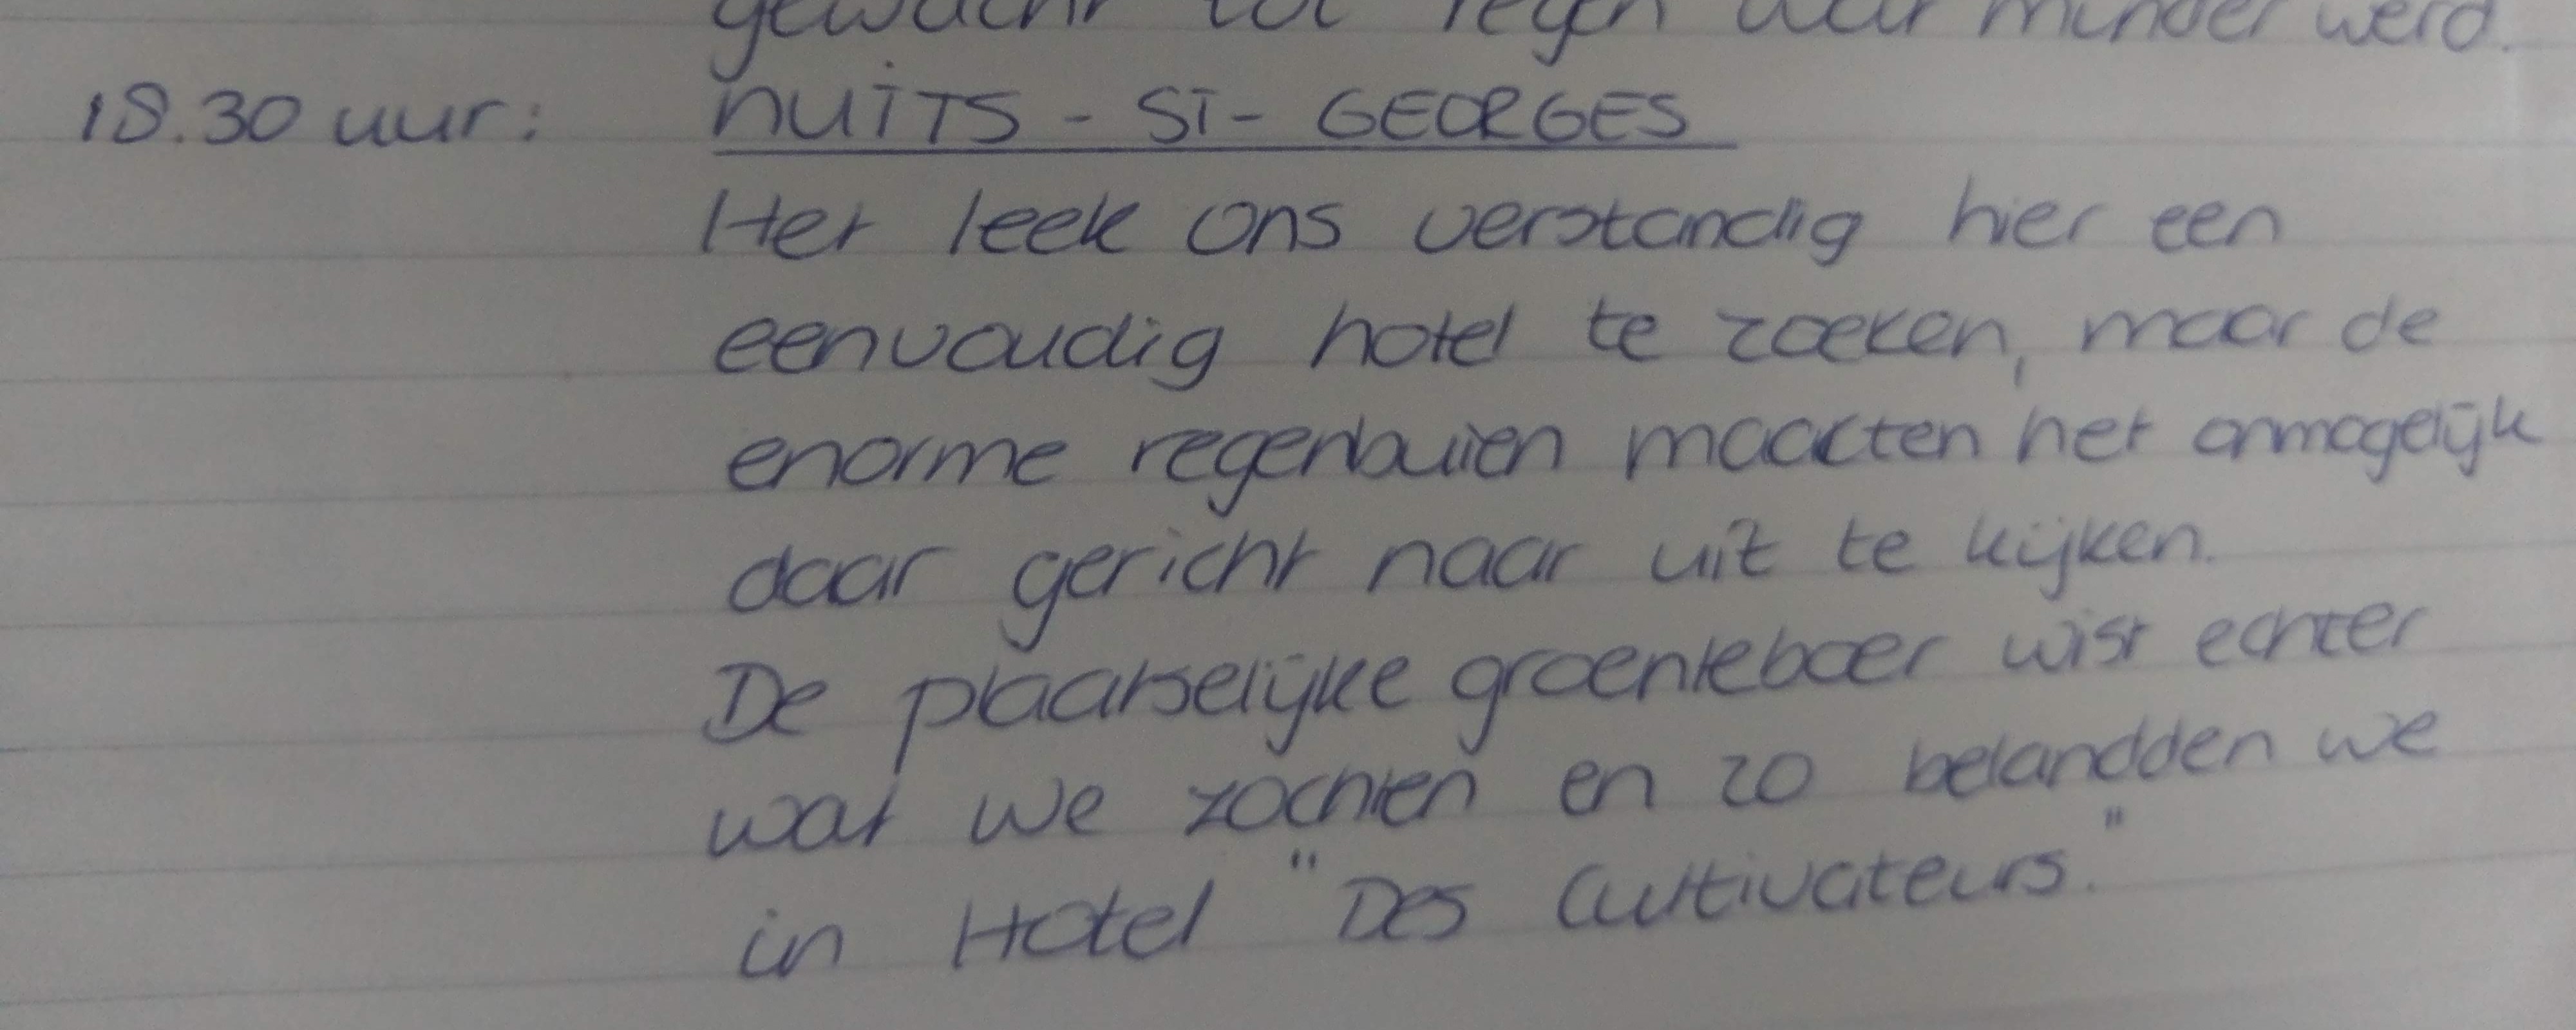 gewacht tot regen wat minder werd.
18.30 uur: NUITS - ST - GEORGES
Het leek ons verstandig hier een
eenvoudig hotel te zoeken, maar de
enorme regenbuien maakten het onmogelijk
daar gericht naar uit te kijken.
De plaatselijke groenteboer wist echter
wat we zochten en zo belandden we
in Hotel "Des Cultivateurs."